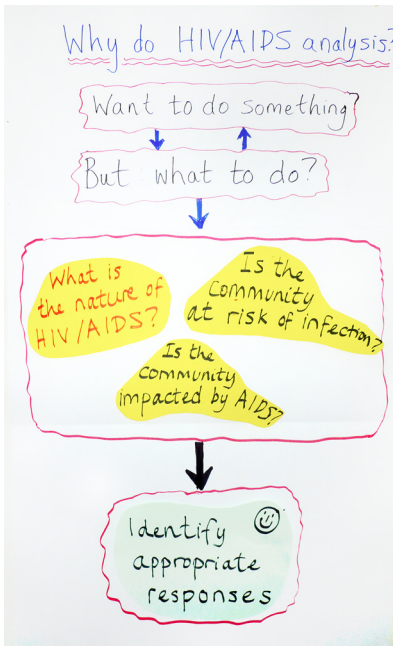 Why do HIV/AIDS analysis?
Want to do something?
But what to do?
What is
the nature of
HIV/AIDS?
Is the
community
at risk of infection?
Is the
community
impacted by AIDS?
Identify
appropriate
responses